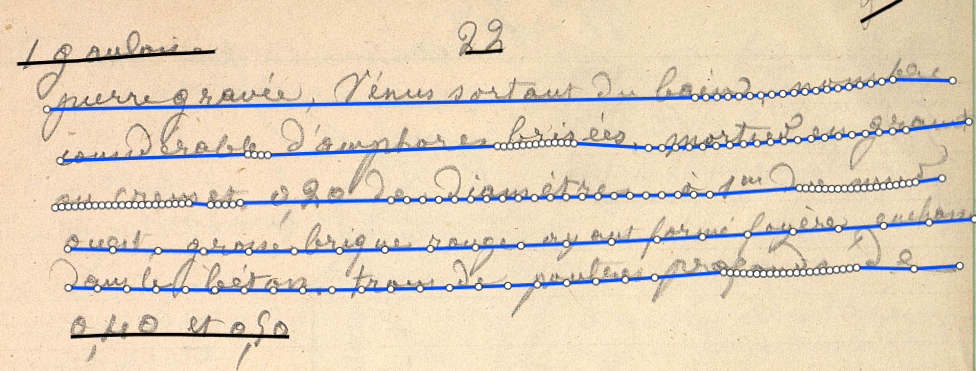 22
1 gaulois.
pierre gravée, Vénus sortant du bain, nombre
considérable d'amphores brisées, mortier en granit
au creux et 0,20 de diamètre à 1m du mur
ouest, grosse brique rouge ayant formé foyère,
dans le béton, trous de poutres profonds de
0,40 et 0,50